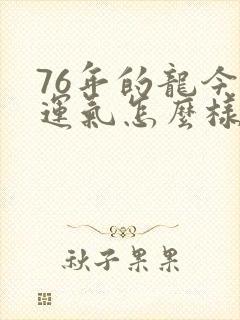 76年的龍今
運氣怎麼樣
秋子果果